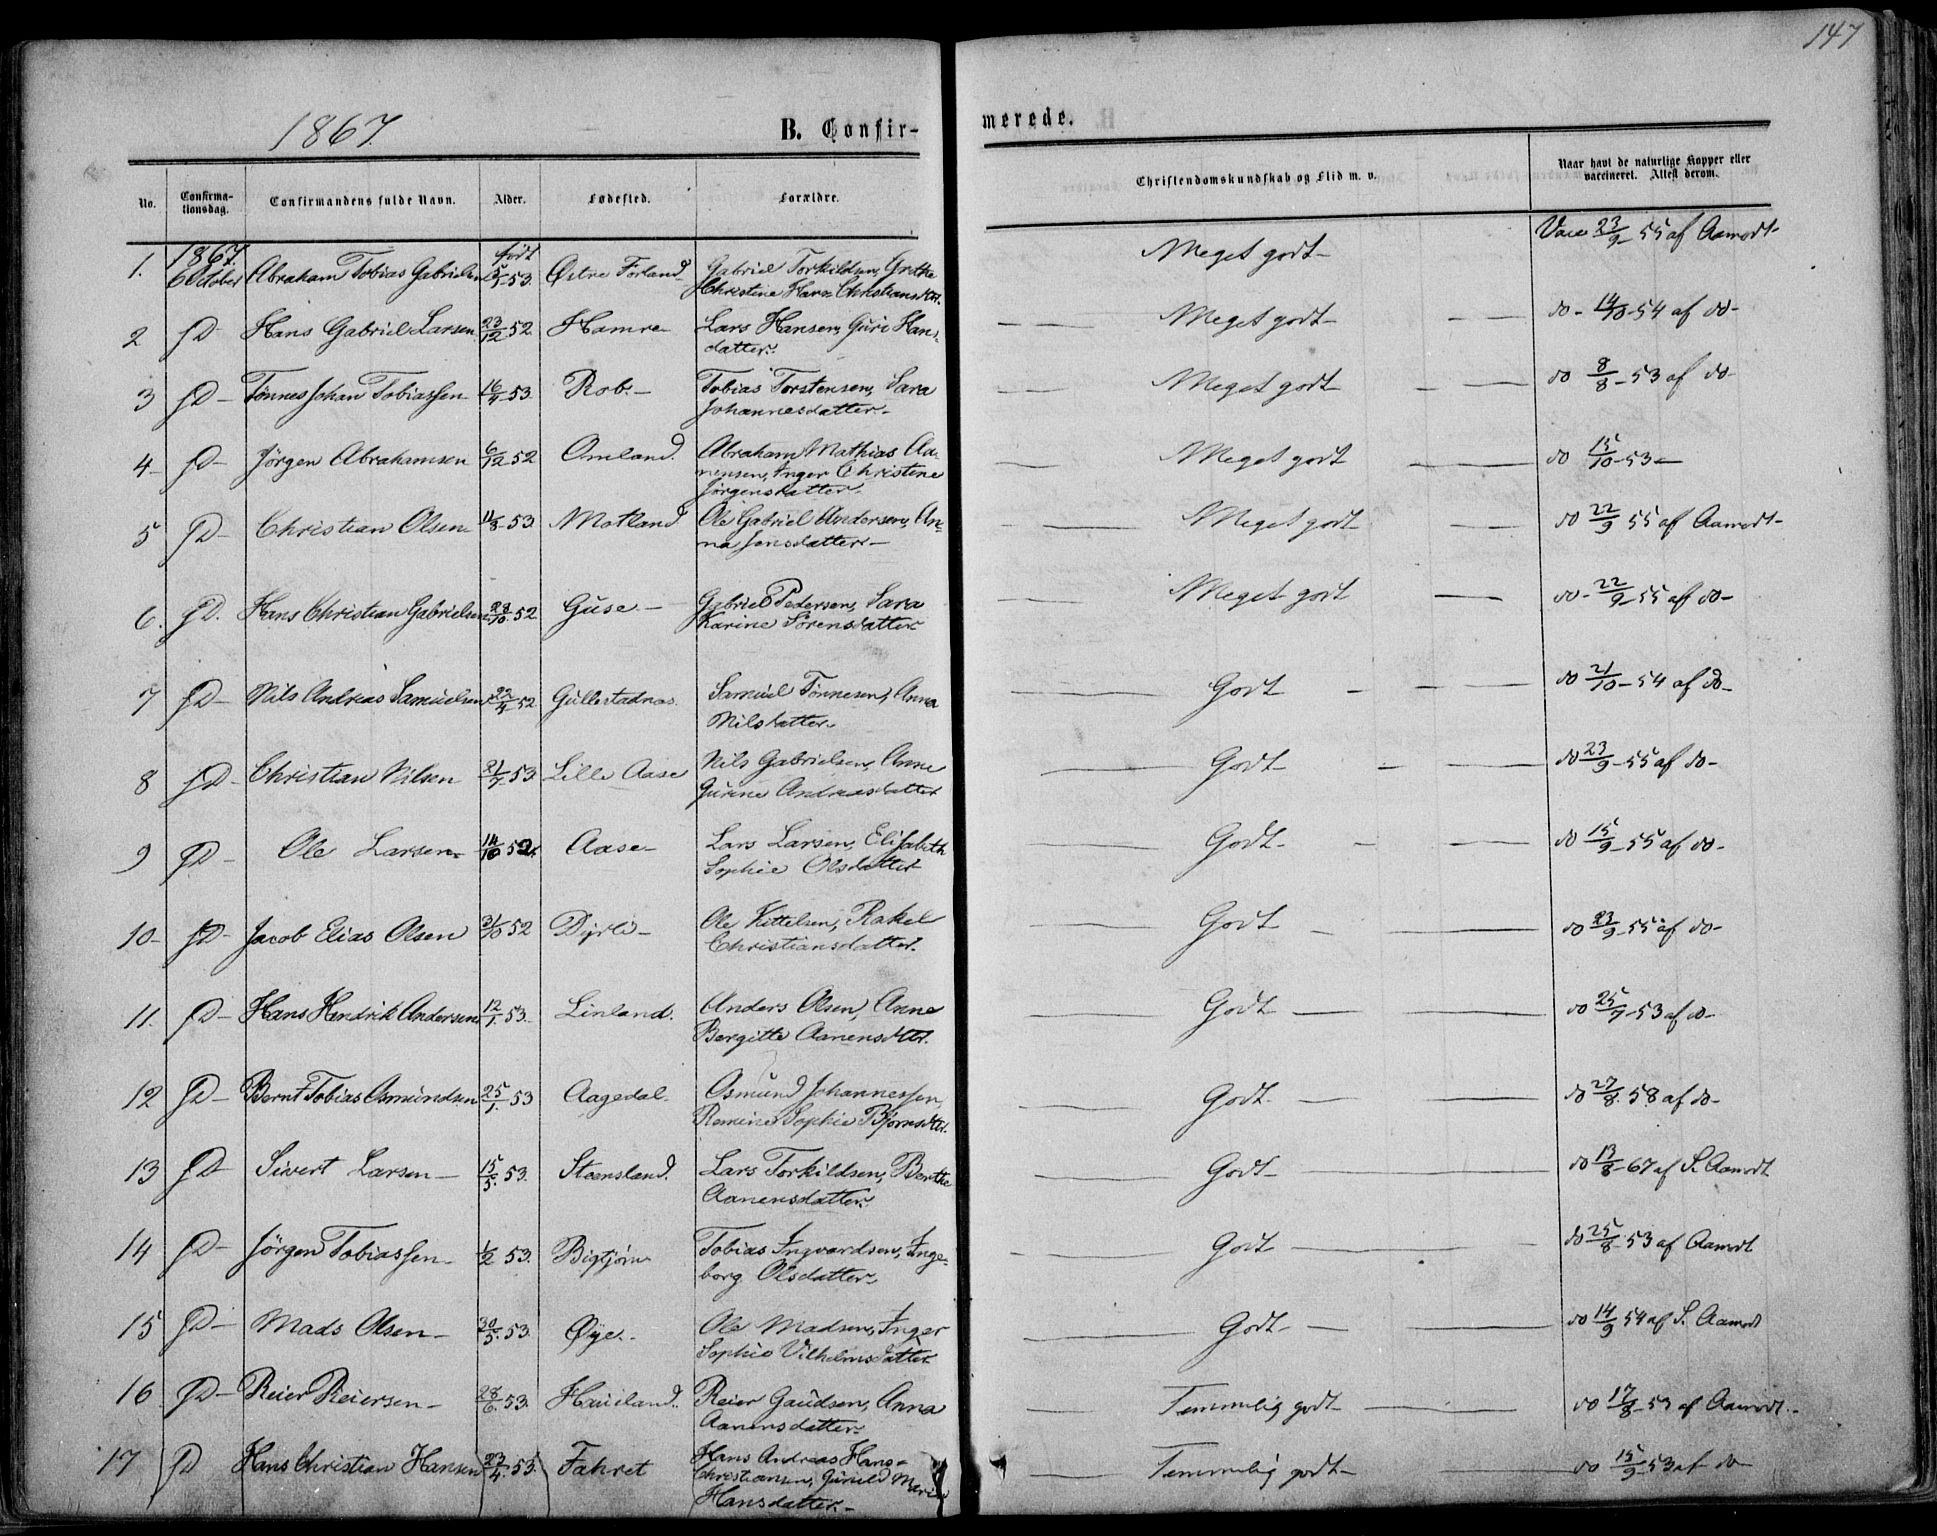 147
1867.
B. Confirmerede.
No. Confirmationsdag. Confirmandens fulde Navn. Alder. Fødested. Forældre. Christendomskundskab og Flid m. v. Naar havt de naturlige Kopper eller vaccineret. Attest derom.
1867. født
1. 6 October Abraham Tobias Gabrielsen 5/1-53. Østre Førland Gabriel Torkildsen, Grethe Meget godt- Vacc 23/9-55 af Aamodt-
Christine Christiansdttr.
2 D Hans Gabriel Larsen 23/12 52 Hamre- Lars Hansen, Guri Hans- Meget godt- do- 14/10-54 af do-
datter.
3 D- Tønnes Johan Tobiassen 16/4-53 Rob.- Tobias Torstensen, Sara Meget godt- do 8/8-53 af do-
Johannesdatter-
4- D- Jörgen Abrahamsen 6/12 52 Omland. Abraham Mathias Aa- Meget godt do 15/10-53-
nensen, Inger Christine
Jørgensdatter-
5 D- Christian Olsen- 11/8-53 Motland Ole Gabriel Andersen, An- Meget godt do 22/9 55 af Aamodt-
na Jensdatter-
6. D. Hans Christian Gabrielsen 28/10 52 Guse- Gabriel Pedersen, Sara Meget godt do- 22/9-55 af do-
Karine Sörensdatter
7 D- Nils Andreas Samuelsen 22/4 52 Gullestadnæs. Samuel Tönnesen, Anna Godt do 21/10-54 af do-
Nilsdatter-
8 D- Christian Nilsen 21/7-53 Lille Aase Nils Gabrielsen, Anne Godt- do 23/9-55 af do-
Gurine Andreasdatter
9 D- Ole Larsen- 14/10 52. Aase- Lars Larsen, Elisabeth Godt- do 15/9-55 af do-
Sophie Olsdatter
10- D- Jacob Elias Olsen 21/10 52 Dyrli- Ole Kittelsen, Rakel Godt do 23/9-55 af do-
Christiansdatter.
11. D- Hans Hendrik Andersen 12/1.53. Linland. Anders Olsen, Anne Godt do 25/9-53 af do-
Bergitte Aanensdttr.
12 D- Bernt Tobias Osmundsen 25/1.53 Aagedal. Osmund Johannessen, Godt. do 27/8.58 af do-
Sophie Bjornsdttr.
13 D- Sivert Larsen- 15/5.53. Steensland. Lars Torkildsen, Berthe Godt- do 13/8-67 af S. Aamodt
Aanensdatter.
14 D- Jörgen Tobiassen- 1/2 53. Bigtjörn Tobias Ingvardsen, Inge- Godt do 25/8-53 af Aamodt
borg Olsdatter-
15 D- Mads Olsen- 30/5.53. Øye- Ole Madsen, Inger Godt- do 14/9 54 af S. Aamodt
Sophie Vilhelmsdatter
16 D- Reier Reiersen- 28/6.53. Haueland. Reier Gaudsen, Anna Temmelig godt- do 17/8-53 af Aamodt.-
Aanensdatter-
17 D Hans Christian Hansen 23/4.53. Fahret Hans Andreas Hans- Temmelig godt- do 15/9-53 af do-
Christiansen, Gunild Marie
Hansdatter.-